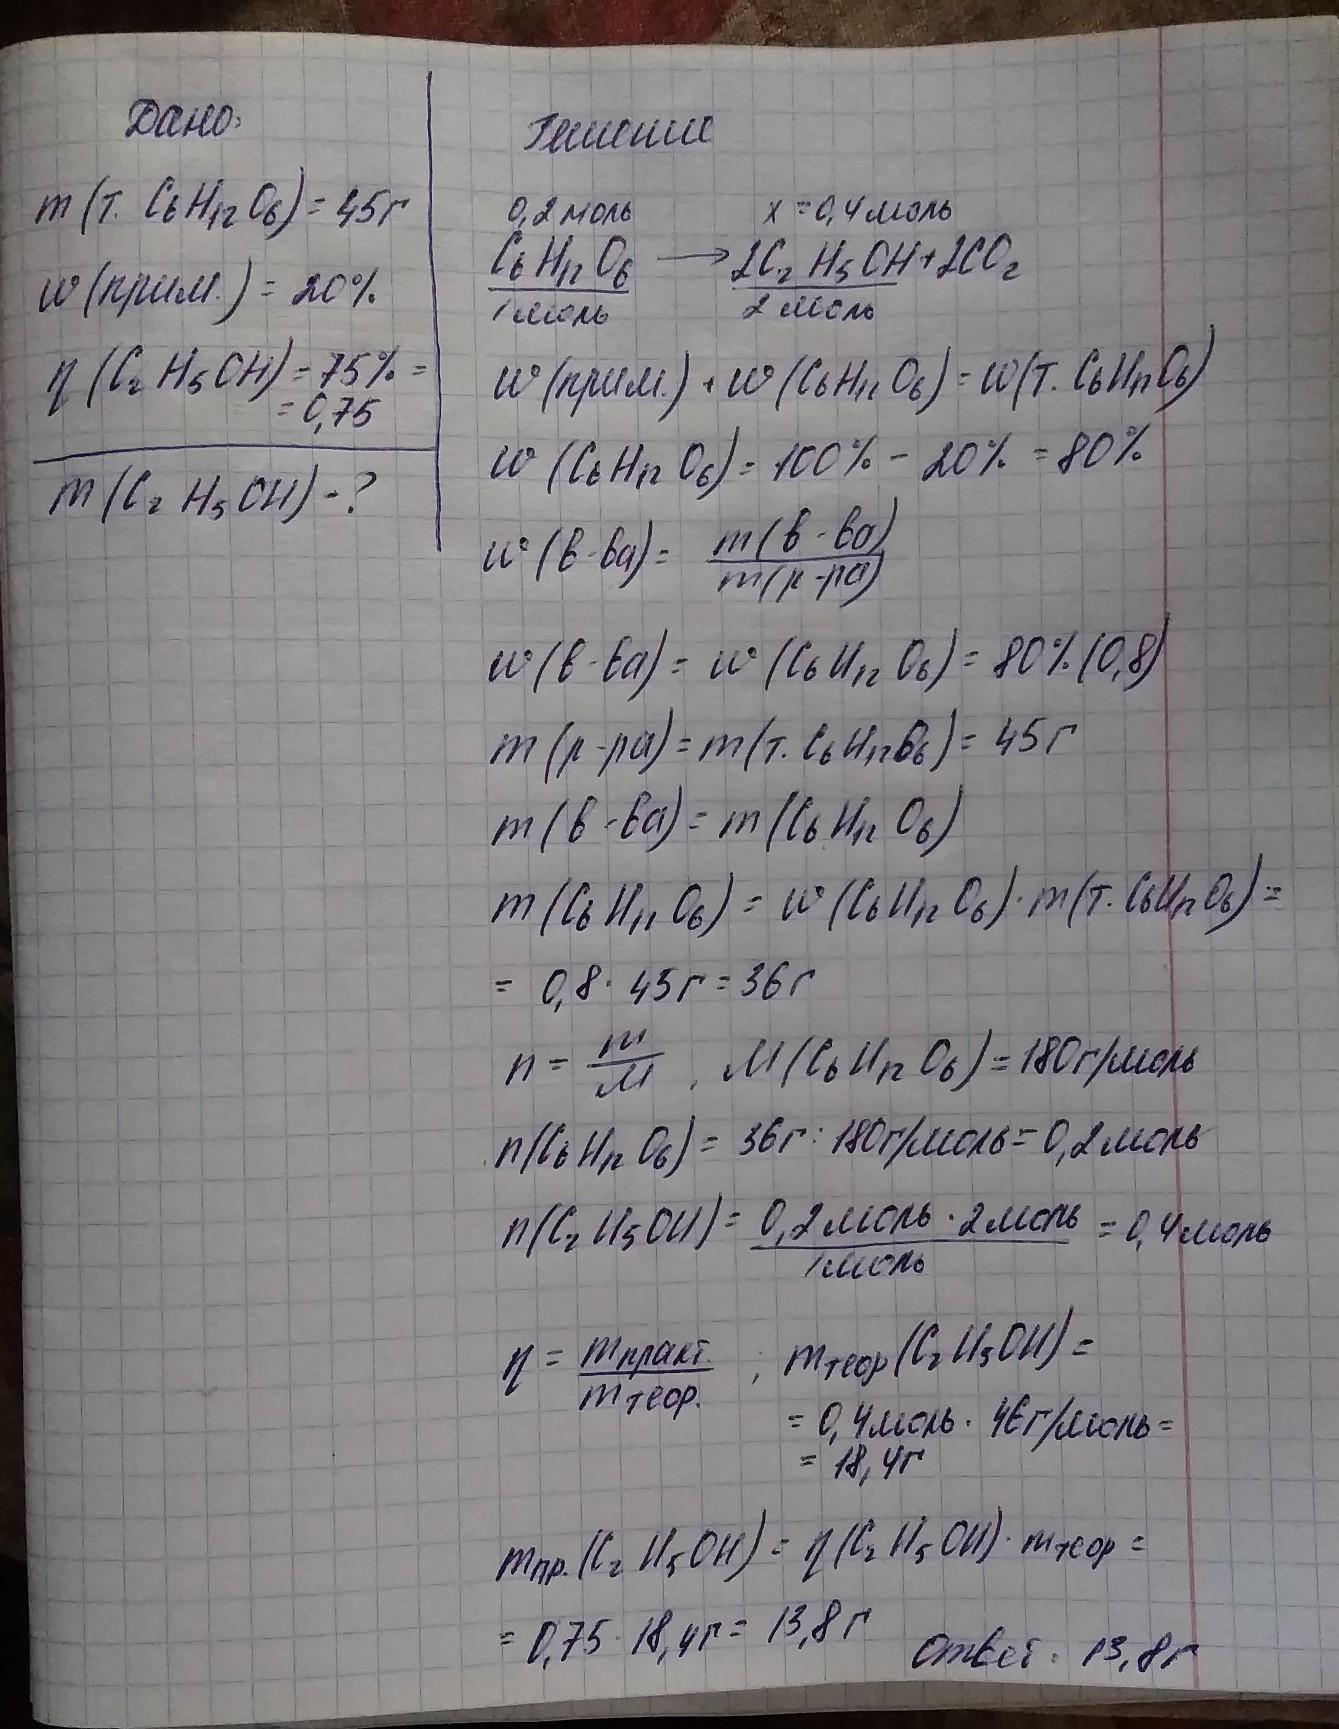 Дано:
m(т. C₆H₁₂O₆) = 45г
w(прим.) = 20%
η(C₂H₅OH) = 75% =
= 0,75
m(C₂H₅OH) - ?
Решение
0,2 моль x = 0,4 моль
C₆H₁₂O₆ → 2C₂H₅OH + 2CO₂
1 моль 2 моль
w(прим.) + w(C₆H₁₂O₆) = w(т. C₆H₁₂O₆)
w(C₆H₁₂O₆) = 100% - 20% = 80%
w(в-ва) = m(в-ва) / m(р-ра)
w(в-ва) = w(C₆H₁₂O₆) = 80% (0,8)
m(р-ра) = m(т. C₆H₁₂O₆) = 45г
m(в-ва) = m(C₆H₁₂O₆)
m(C₆H₁₂O₆) = w(C₆H₁₂O₆) · m(т. C₆H₁₂O₆) =
= 0,8 · 45г = 36г
n = m / M , M(C₆H₁₂O₆) = 180г/моль
n(C₆H₁₂O₆) = 36г : 180г/моль = 0,2 моль
n(C₂H₅OH) = 0,2 моль · 2 моль / 1 моль = 0,4 моль
η = mпракт. / mтеор. ; mтеор(C₂H₅OH) =
= 0,4 моль · 46г/моль =
= 18,4г
mпр.(C₂H₅OH) = η(C₂H₅OH) · mтеор =
= 0,75 · 18,4г = 13,8г
Ответ: 13,8г